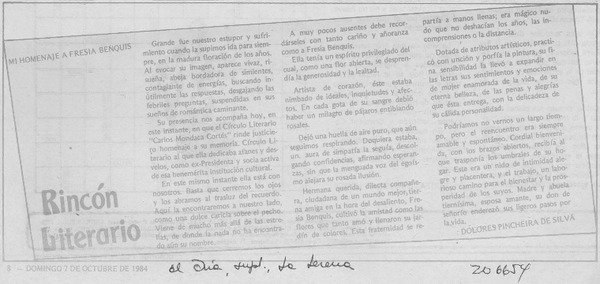 MI HOMENAJE A FRESIA BENQUIS
Grande fue nuestro estupor y sufri-
miento cuando la supimos ida para siem-
pre, en la madura floración de los años.
Al evocar su imagen, aparece vivaz, ri-
sueña, sbeja bordadora de simientes,
contagiante de energías, buscando in-
útilmente las respuestas, desgajando las
febriles preguntas, suspendidas en sus
sueños de romántica caminante.
Su presencia nos acompaña hoy, en
este instante, en que el Círculo Literario
"Carlos Mondaca Cortés" rinde justicie-
ro homenaje a su memoria. Círculo Li-
terario al que ella dedicaba afanes y des-
velos, como ex-Presidenta y socia activa
de esa benemérita institución cultural.
En este mismo instante ella está con
nosotros. Basta que cerremos los ojos
y los abramos al trasluz del recuerdo.
Aquí la encontraremos a nuestro lado,
como una dulce caricia sobre el pecho.
Viene de mucho más allá de las estre-
llas, de donde la nada
do aún su nombre.
Rincón
Literario
A muy pocos ausentes debe recor-
dárseles con tanto cariño y añoranza
como a Fresia Benquis.
Ella tenía un espíritu privilegiado del
cual, como una flor abierta, se despren-
día la generosidad y la lealtad.
Artista de corazón, éste estaba
animbado de ideales, inquietudes y afec-
tos. En cada gota de su sangre debió
haber un milagro de pájaros entibiando
rosales.
Dejó una huella de aire puro, que aún
seguimos respirando. Doquiera estaba,
un aura de simpatía la seguía, descol-
gando confidencias, afirmando esperan-
zas, sin que la menguada voz del egoís-
mo alejara su rosada ilusión.
Hermana querida, dilecta compañe-
ra, ciudadana de un mundo mejor,
na amiga en la hora del desaliento, Fre-
sia Benquis, cultivó la amistad como las
flores que tanto amó y llenaron su jar-
dín de colores. Esta fraternidad se re-
partía a manos llenas; era mágico nu-
do que no deshacían los años, las in-
comprensiones o la distancia.
Dotada de atributos artísticos, practi-
có con unción y porfía la pintura, su fi-
na sensibilidad la llevó a expandir en
las letras sus sentimientos y emociones
de mujer enamorada de la vida, de su
eterna belleza, de las penas y alegrías
que ésta entrega, con la delicadeza de
su cálida personalidad.
Podríamos no vernos un largo tiem-
po, pero el reencuentro era siempre
amable y espontáneo. Cordial bienveni-
da, con los brazos abiertos, recibía al
que trasponía los umbrales de su ho-
gar. Este era un nido de intimidad ale-
gre y placentera, y el trabajo, un labo-
rioso camino para el bienestar y la pros-
peridad de los suyos. Madre y abuela
tiernísima, esposa amante, su don de
señorío enderezó sus ligeros pasos por
la vida.
DOLORES PINCHEIRA DE SILVA
8 — DOMINGO 7 DE OCTUBRE DE 1984
El Día, supl., La Serena
206654